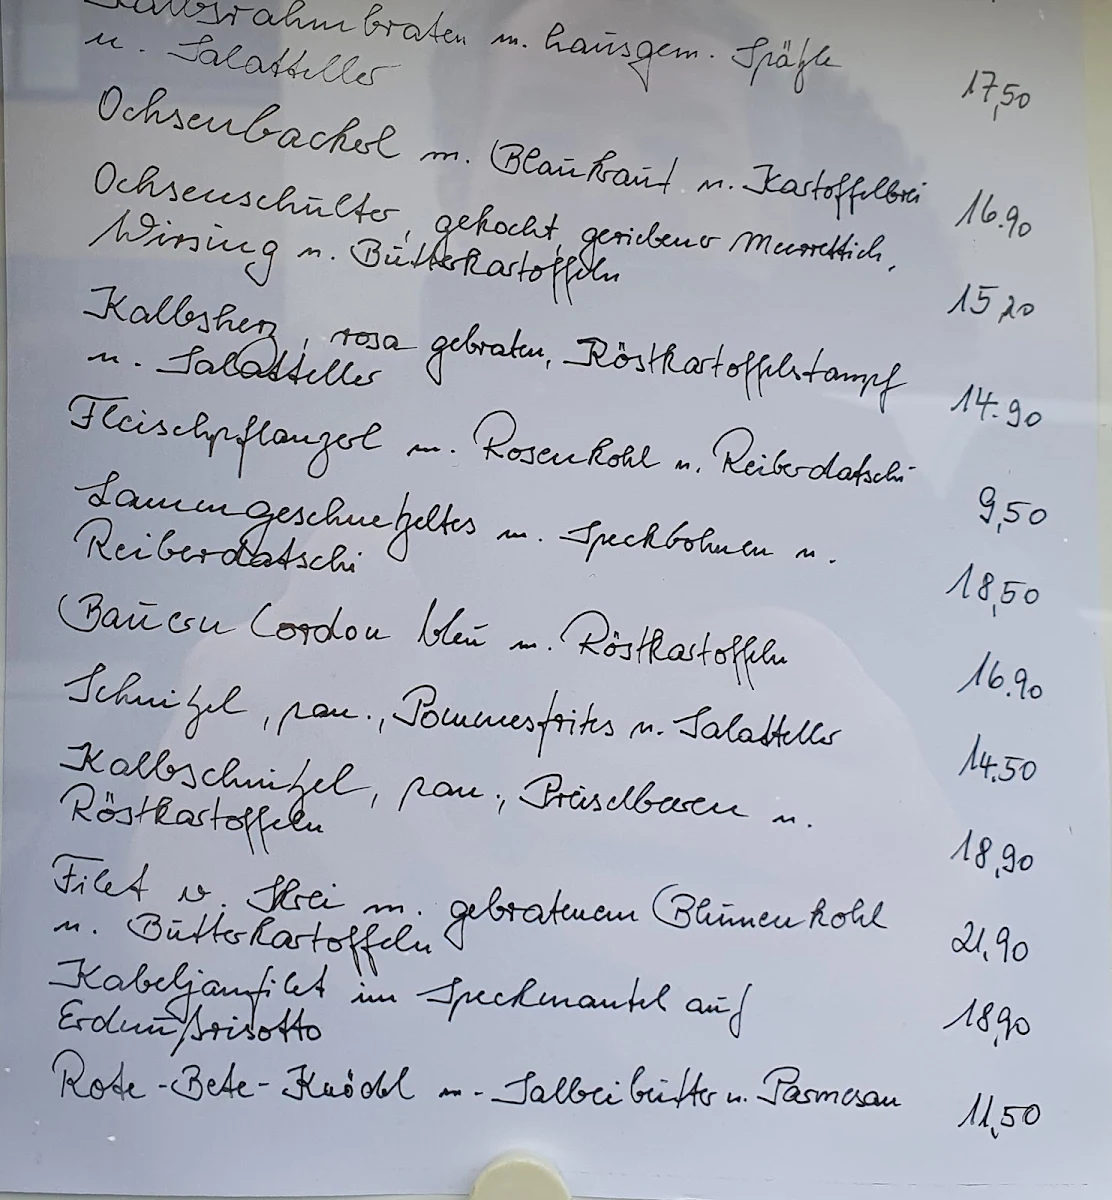 Kalbsrahmbraten m. hausgem. Spätzle
u. Salatteller 17,50
Ochsenbackerl m. Blaukraut u. Kartoffelbrei 16.90
Ochsenschulter, gekocht, geriebener Meerrettich,
Wirsing u. Butterkartoffeln 15,20
Kalbsherz, rosa gebraten, Röstkartoffelstampf
u. Salatteller 14.90
Fleischpflanzerl m. Rosenkohl u. Reiberdatschi 9,50
Lammgeschnetzeltes m. Speckbohnen u.
Reiberdatschi 18,50
Bauern Cordon bleu m. Röstkartoffeln 16.90
Schnitzel, pan., Pommesfrites u. Salatteller 14.50
Kalbschnitzel, pan., Preiselbeeren u.
Röstkartoffeln 18,90
Filet v. Skrei m. gebratenem Blumenkohl
u. Butterkartoffeln 21,90
Kabeljaufilet im Speckmantel auf
Erdnußrisotto 18,90
Rote-Bete-Knödel m. Salbeibutter u. Parmesan 11,50